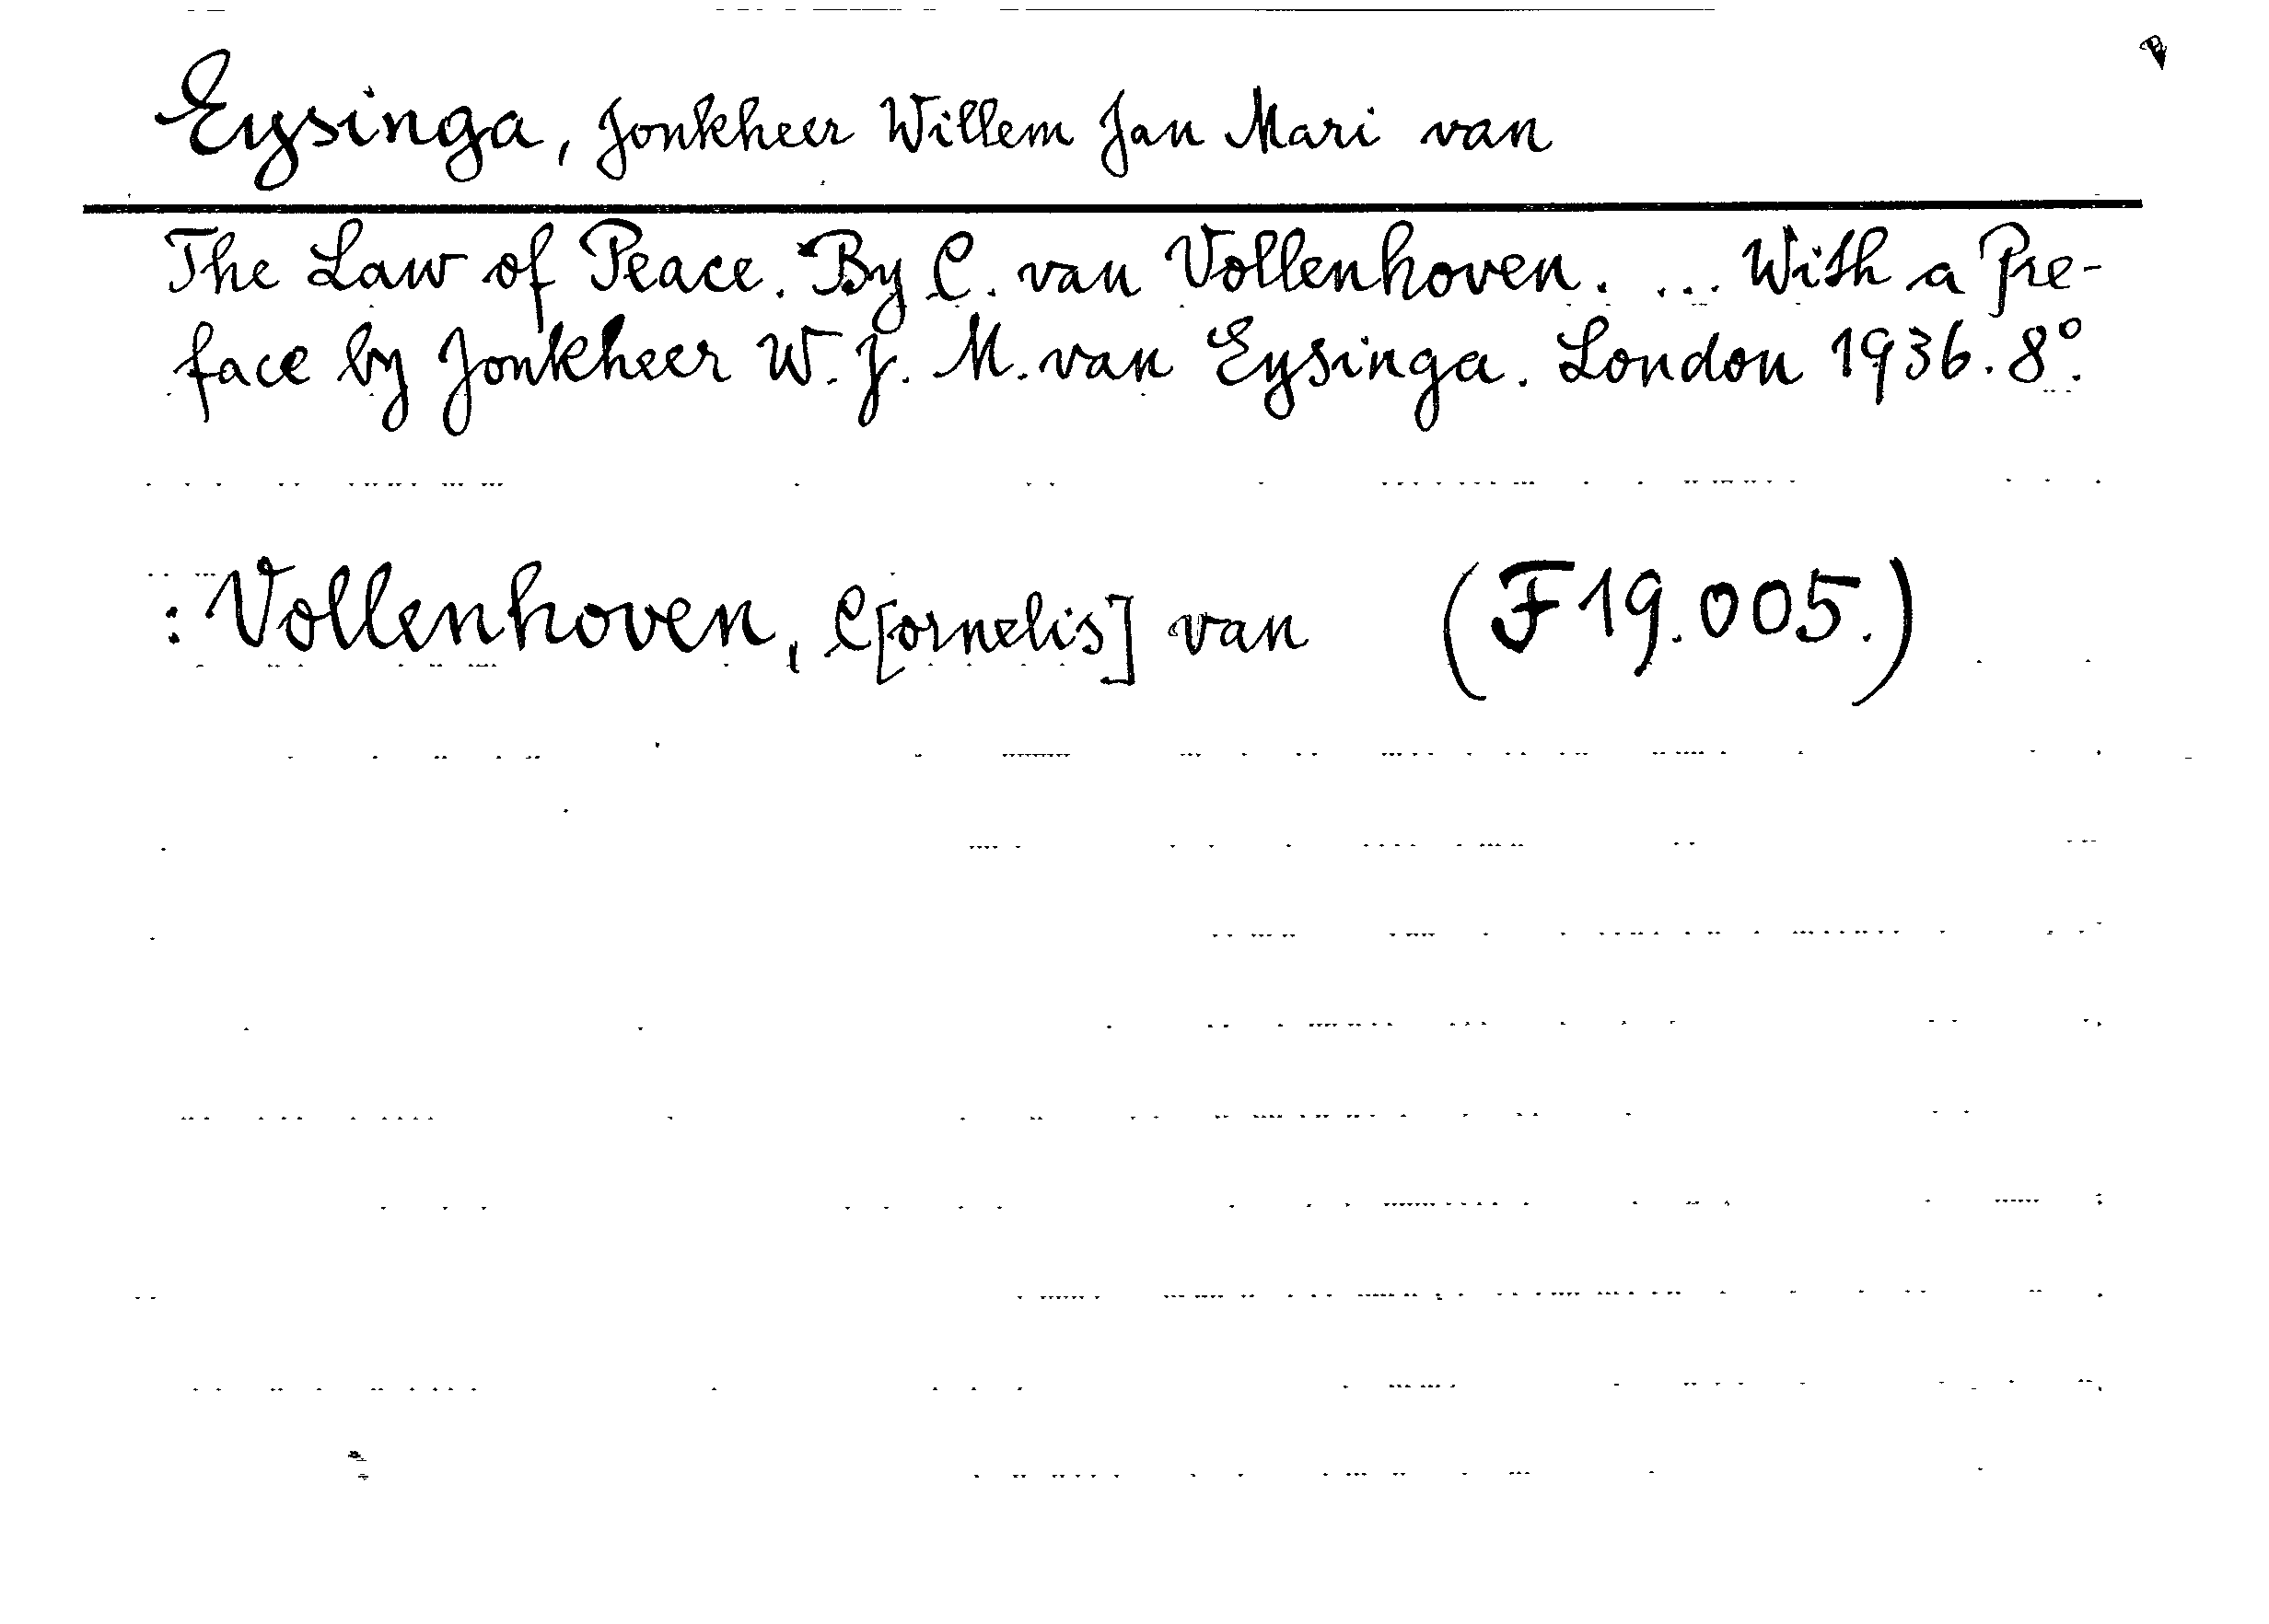 Eysinga, Jonkheer Willem Jan Mari van
The Law of Peace. By C. van Vollenhoven. ... With a Pre-
face by Jonkheer W. J. M. van Eysinga. London 1936. 8°.
: Vollenhoven, C[ornelis] van (F19.005.)